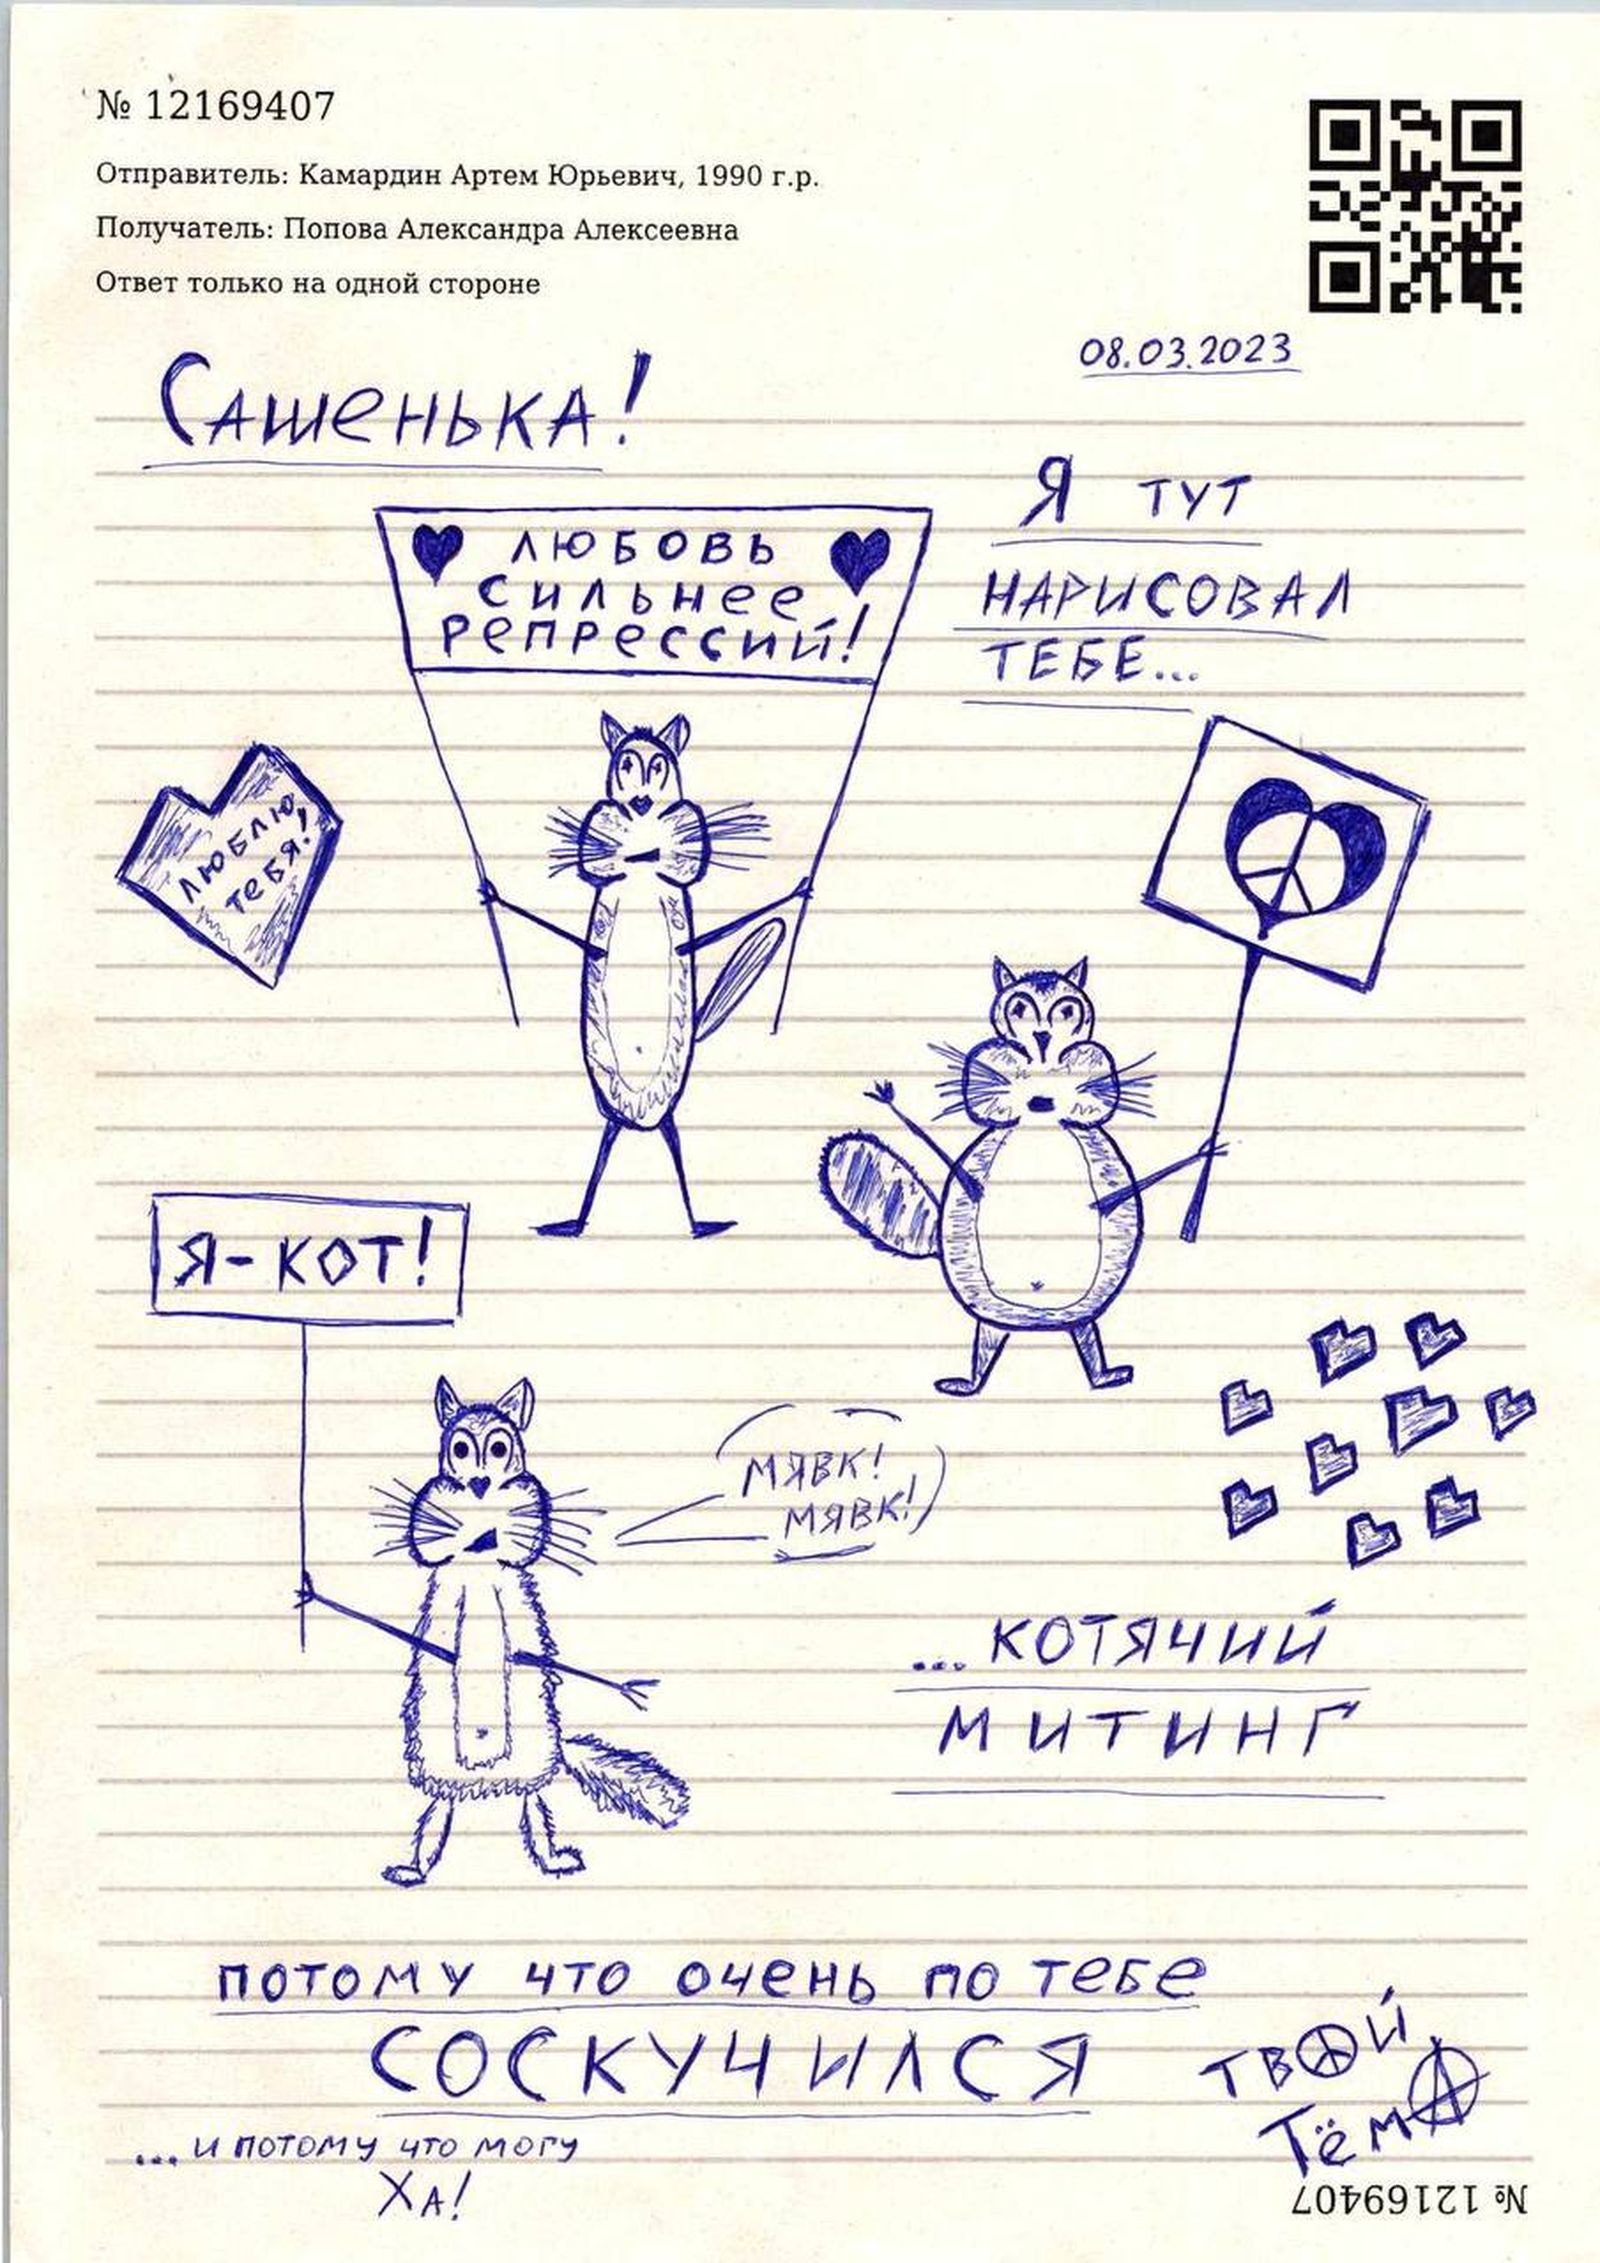 № 12169407
Отправитель: Камардин Артем Юрьевич, 1990 г.р.
Получатель: Попова Александра Алексеевна
Ответ только на одной стороне
08.03.2023
Сашенька!
Я тут
нарисовал
тебе...
Любовь
сильнее
репрессий!
Люблю
тебя!
Я-кот!
мявк!
мявк!
...котячий
митинг
потому что очень по тебе
соскучился
...и потому что могу
Ха!
Твой
Тёма
№ 12169407